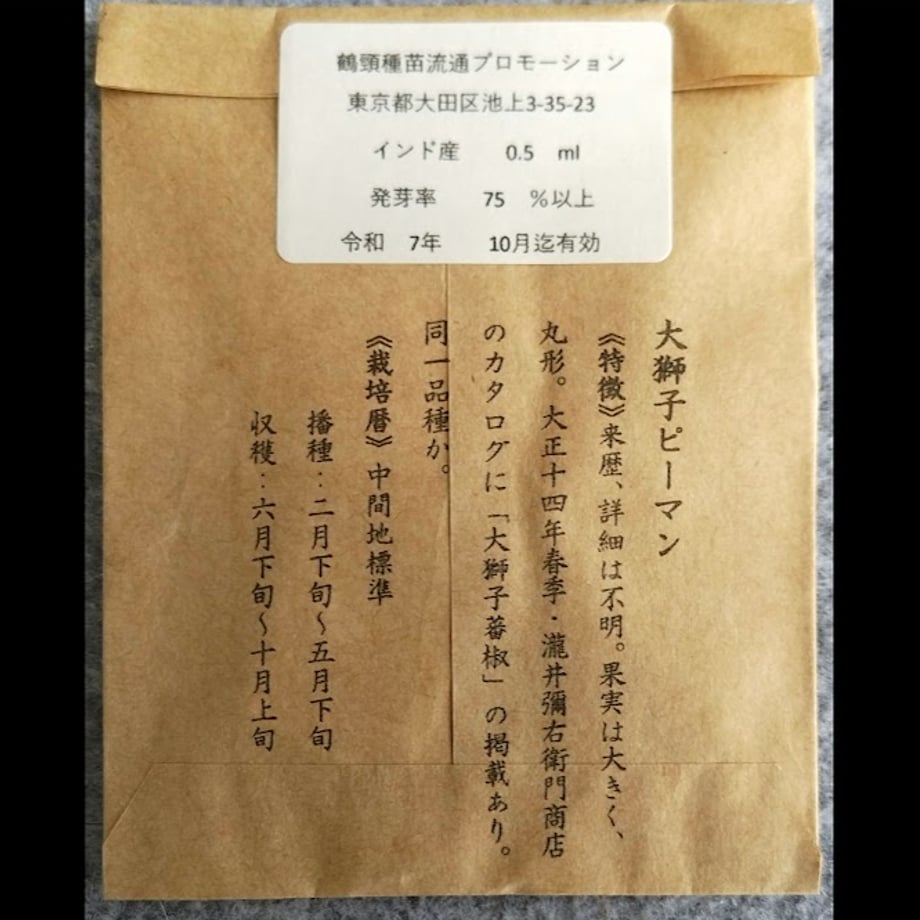 鶴頸種苗流通プロモーション
東京都大田区池上3-35-23
インド産 0.5 ml
発芽率 75 %以上
令和 7年 10月迄有効
大獅子ピーマン
《特徴》来歴、詳細は不明。果実は大きく、
丸形。大正十四年春季・瀧井彌右衛門商店
のカタログに「大獅子蕃椒」の掲載あり。
同一品種か。
《栽培暦》中間地標準
播種：二月下旬～五月下旬
収穫：六月下旬～十月上旬